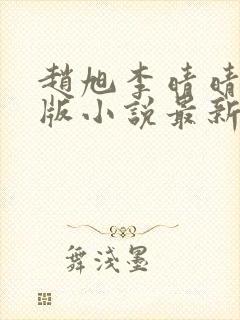 趙旭李晴晴
版小說最新
舞淺墨